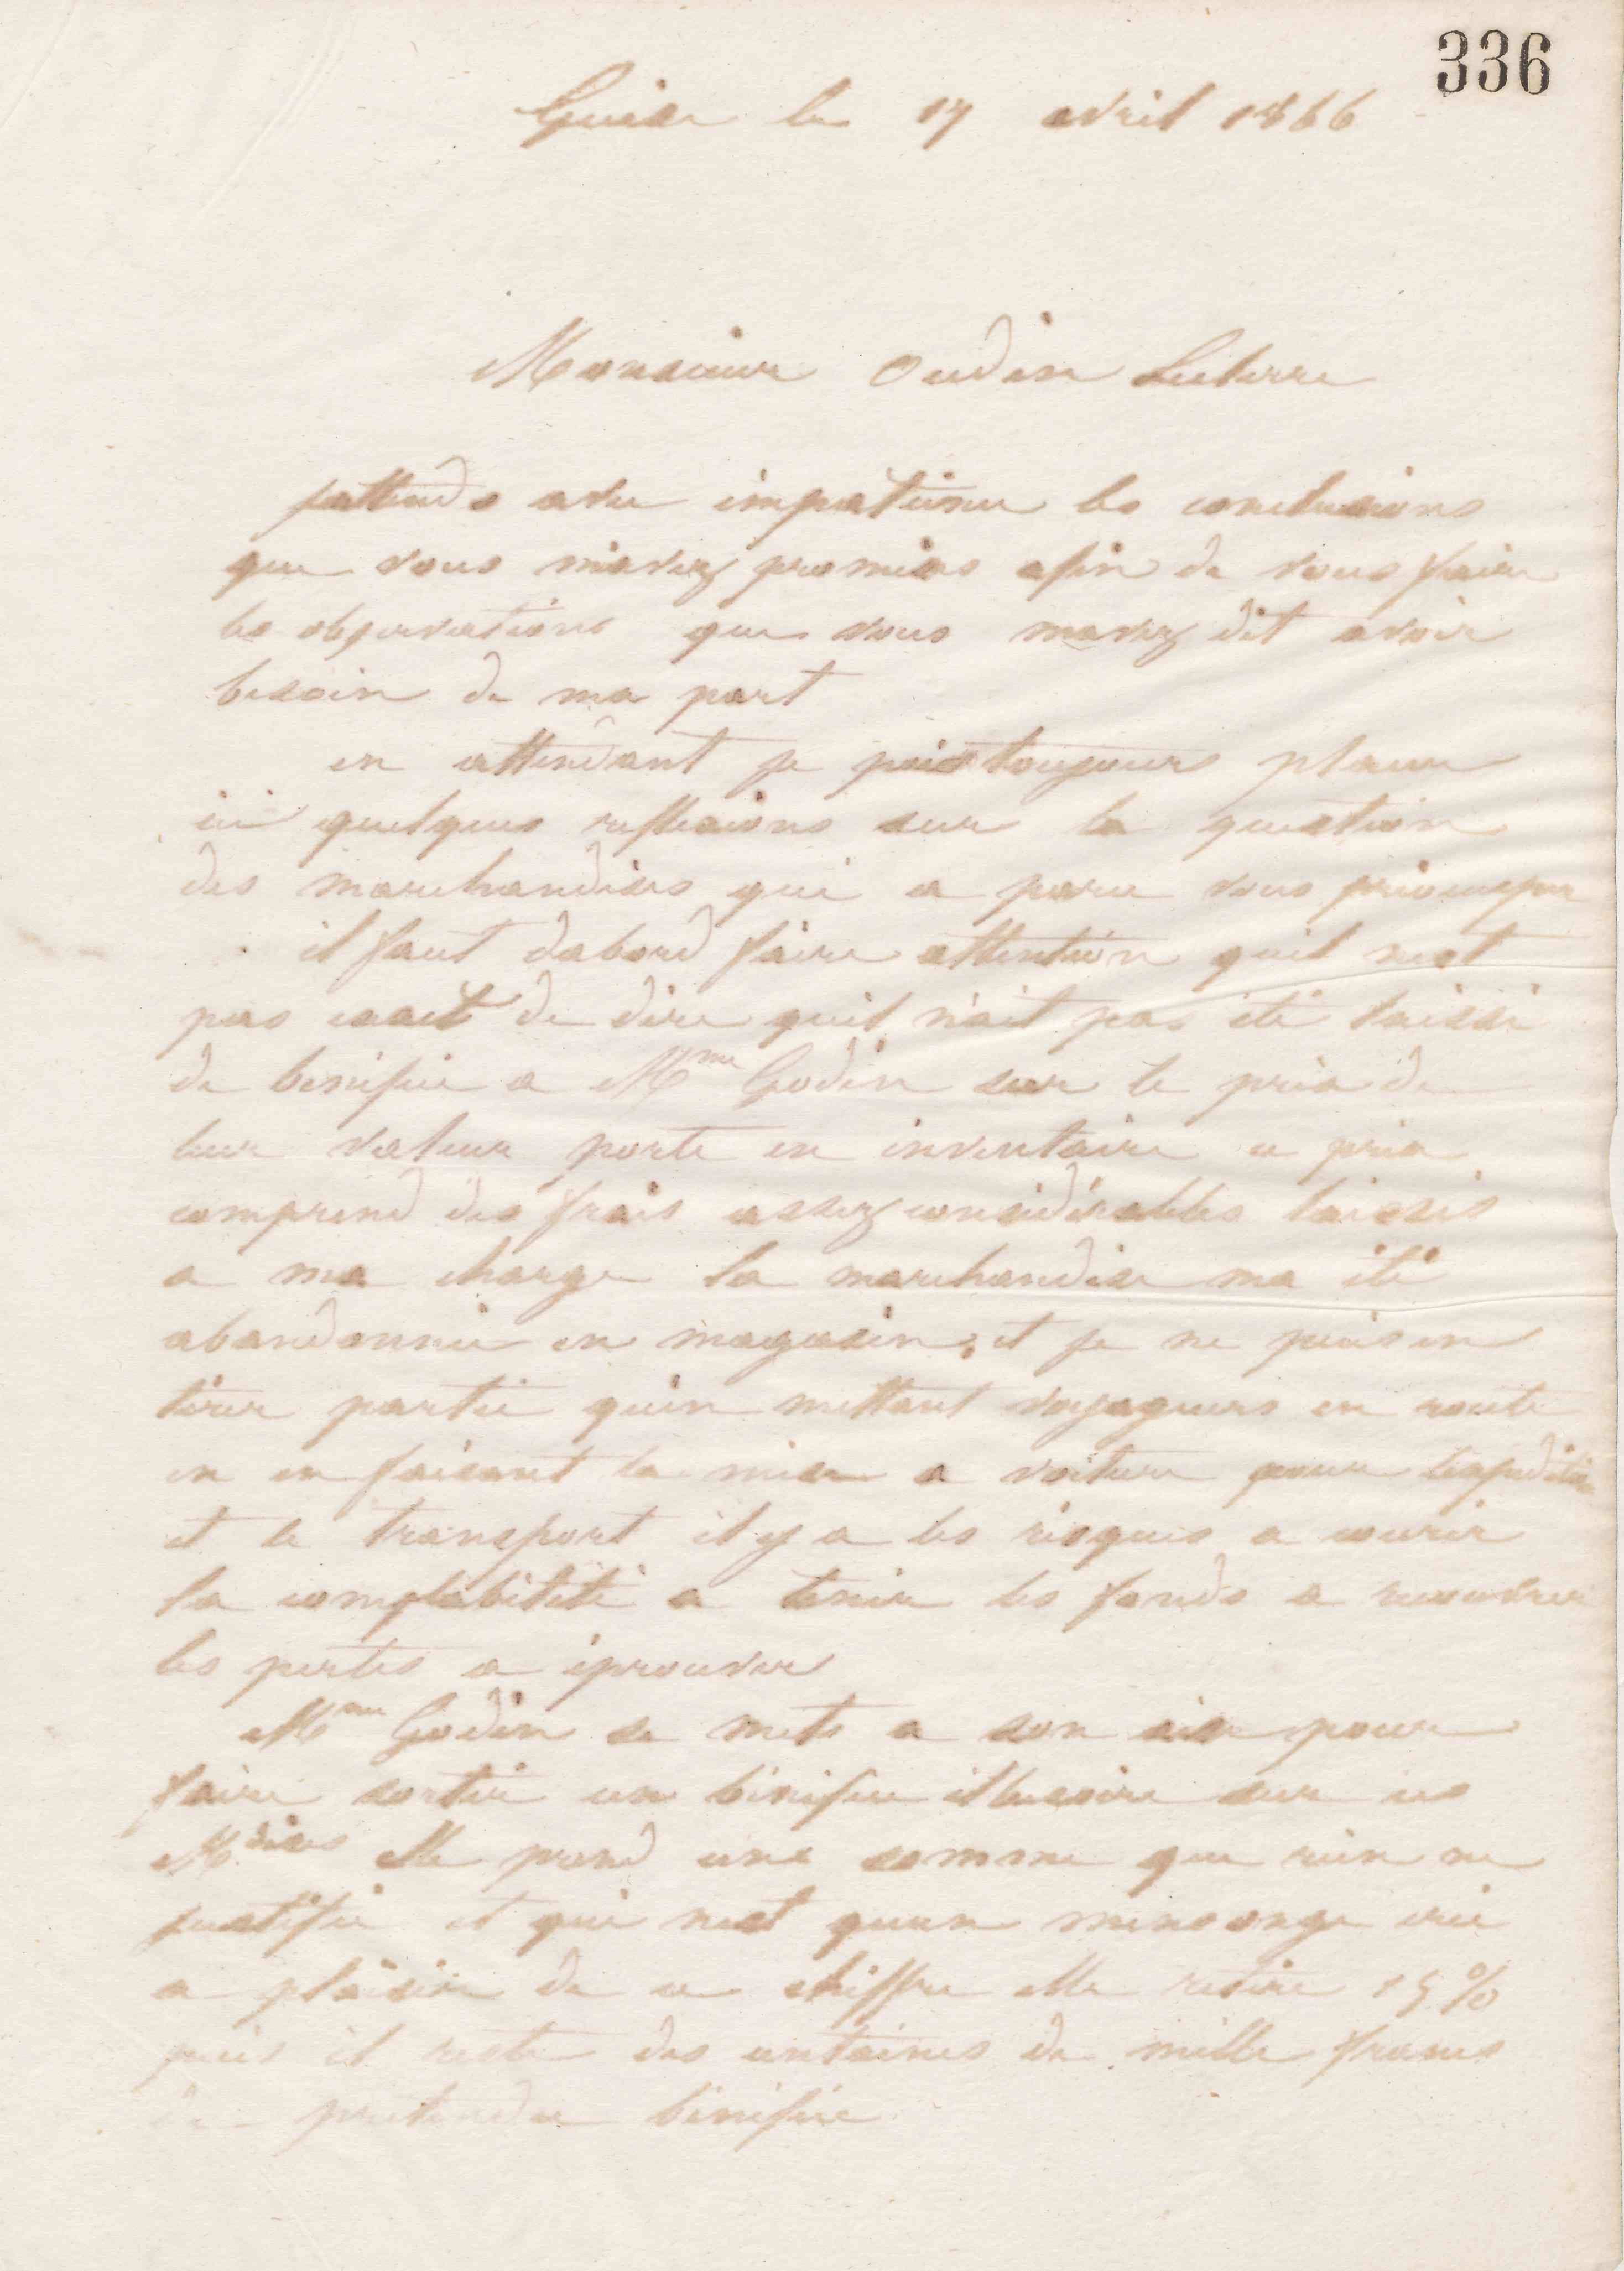 336
Guise le 17 avril 1866
Monsieur Oudin Leclerre
jattends avec impatience les conclusions
que vous mavez promises afin de vous faire
les observations que vous mavez dit avoir
besoin de ma part
en attendant je puis toujours placer
ici quelques reflexions sur la question
des marchandises qui a paru vous préoccuper
il faut dabord faire attention quil nest
pas exact de dire quil n'ait pas été laissé
de benefice a Mme Godin sur le prix de
leur valeur porté en inventaire ce prix
comprend des frais assez considérables laissés
a ma charge la marchandise ma été
abandonnée en magasin, et je ne puis en
tirer partie quen mettant voyageurs en route
en en faisant la mise a voiture pour lexpedition
et le transport il y a les risques a courir
la comptabilité a tenir les fonds a recouvrer
les pertes a éprouver
Mme Godin se mets a son aise pour
faire sortir un bénéfice illusoire sur ces
Mdises elle prend une somme que rien ne
justifie et qui nest quun mensonge créé
a plaisir de ce chiffre elle retire 15 %
puis il reste des centaines de mille francs
de pretendu bénéfice